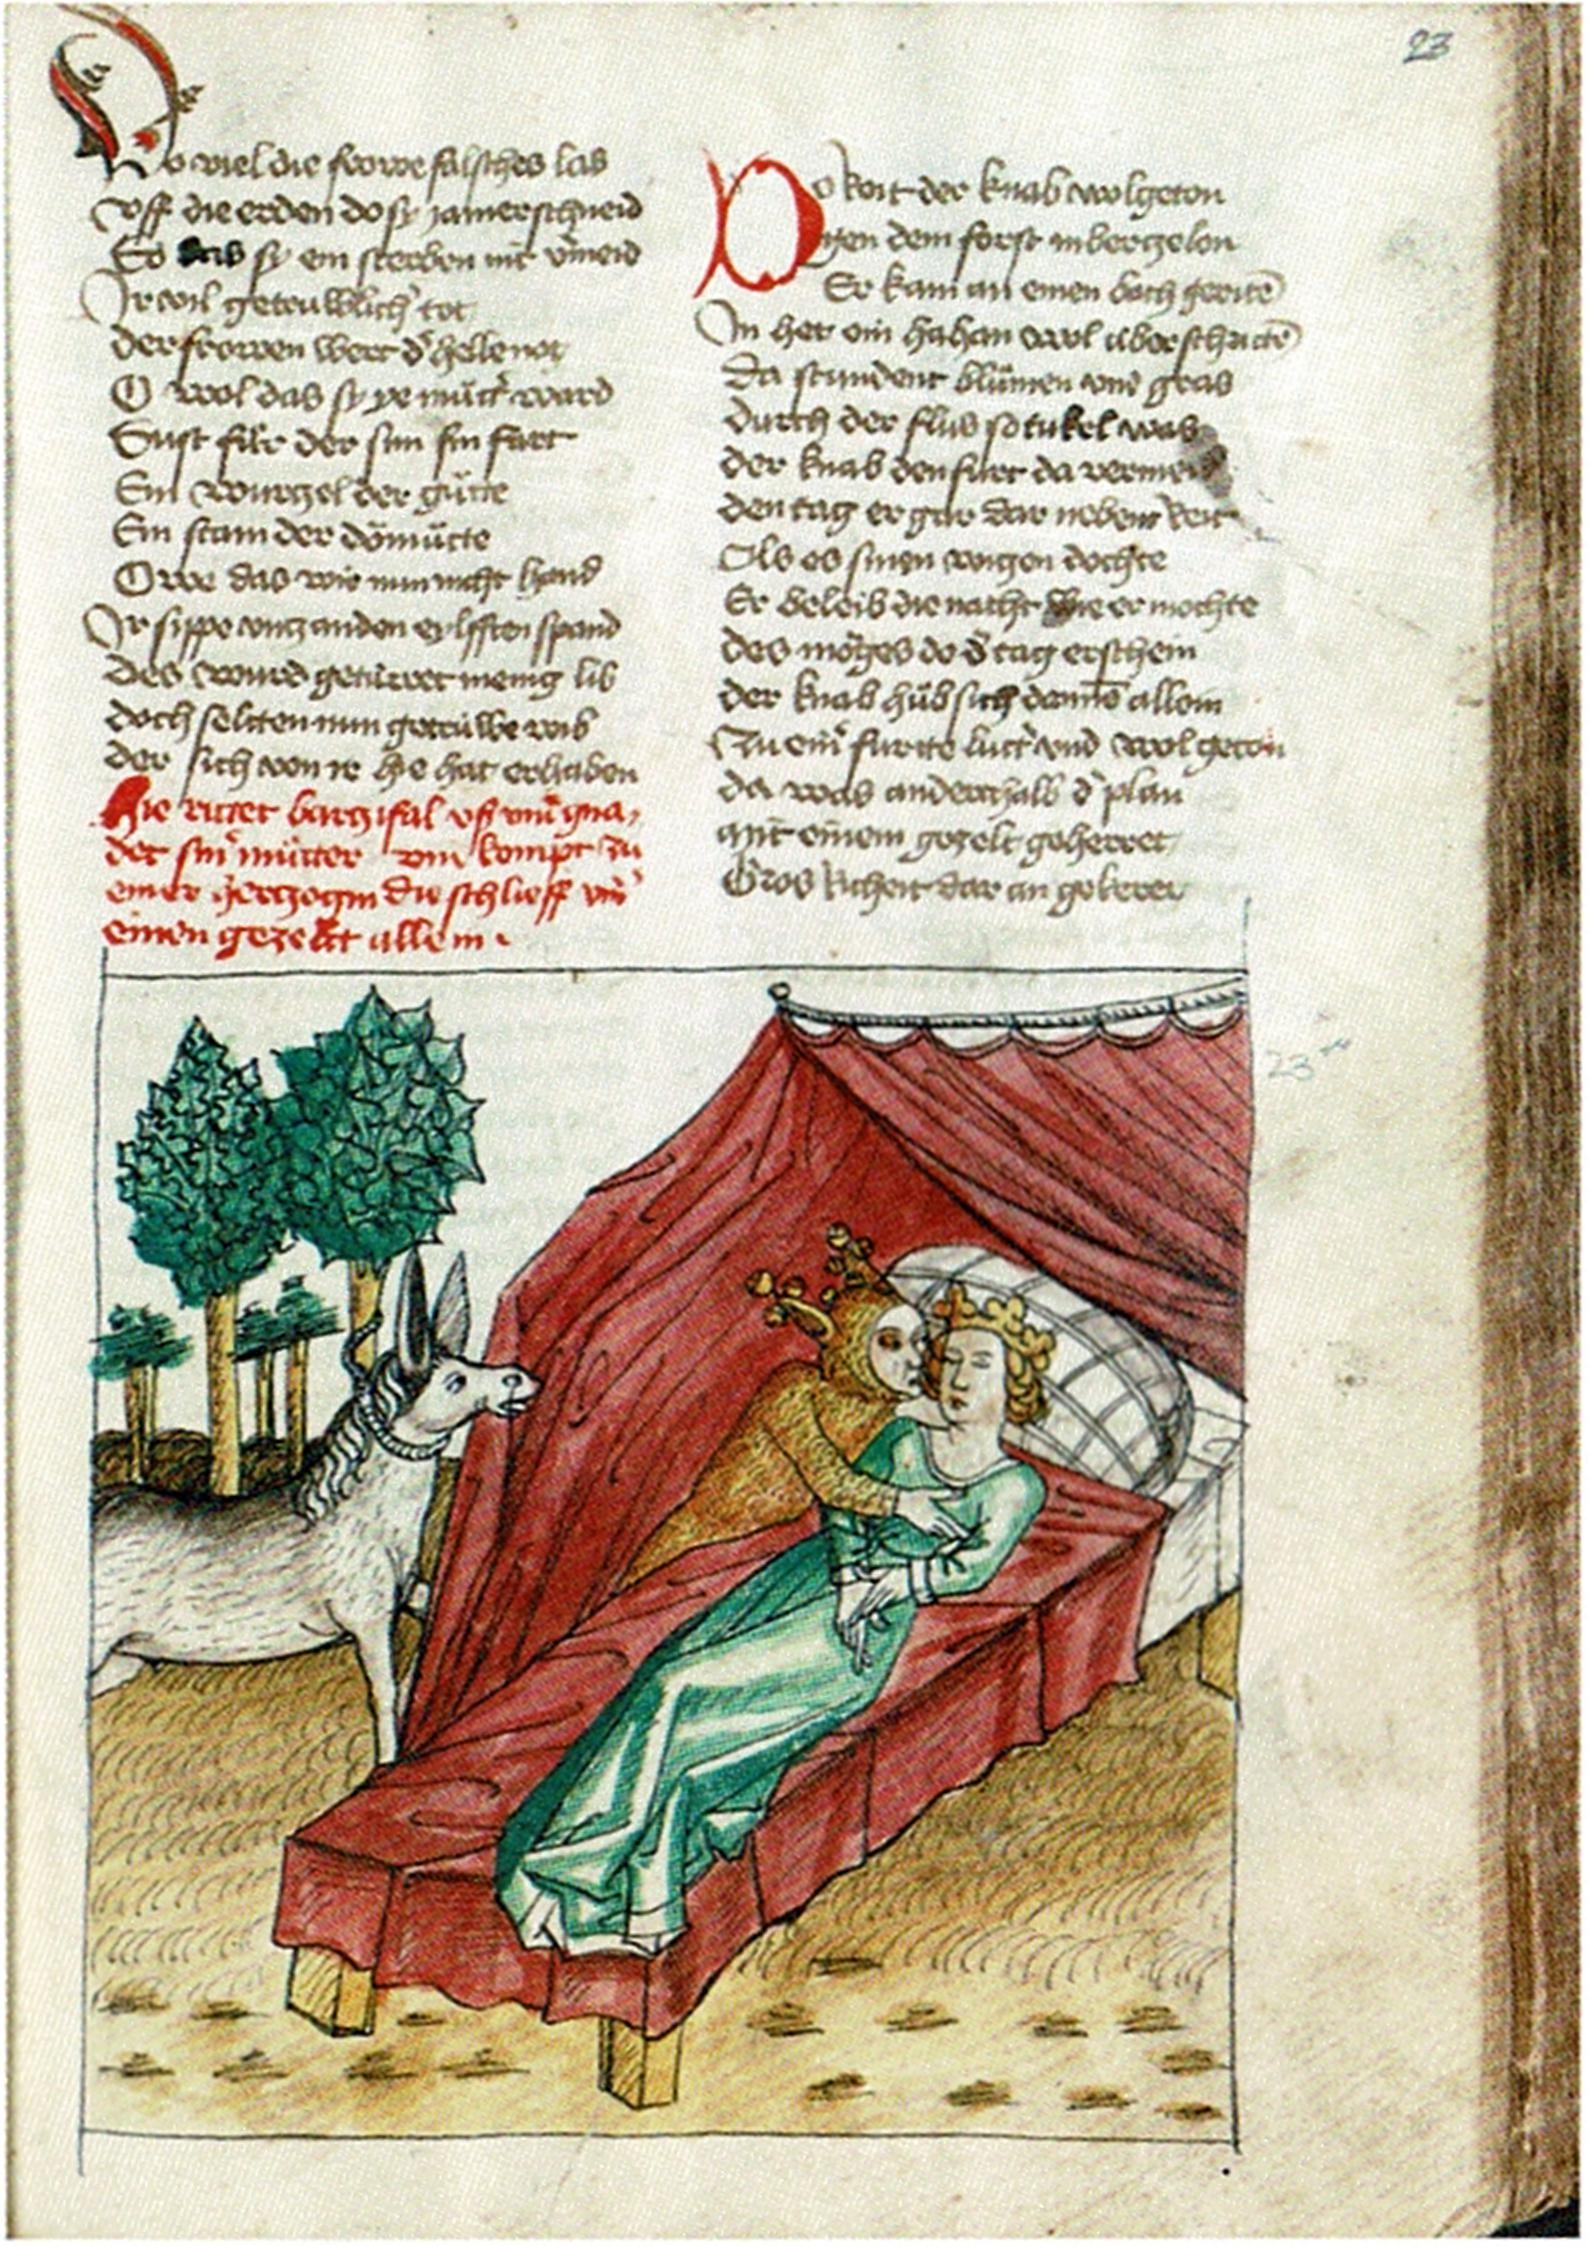 23
Do viel die frowe falsches las
Uff die erden do sy jamer schneid
So das sy ein sterben nit v̾meid
Ir vil getrúwlich tot
der frowen wert d̾ helle not
O wol das sy ye mutt̾ ward
Sust fůr der sin fin fart
Ein wurczel der gůtte
Ein stam der dömůtte
Owe das wir nun nicht hand
Ir sippe uncz an den eylfften spand
Des wurd getúrret menig lib
doch seltten nun getrúwe wib
der sich von ir hie hat erhaben
Hie rittet barczifal uß vnd gna,
det sin̾ můtter vnd kompt zu
einer herczogin die schlieff vnd̾
einem gezelt allein .
Do keit der knab wolgeton
Gen dem forst in berczelon
Er kam an einen bach gerite̅
In het ein hahan wol úberschritte̅
Da stundent blůmen vnd gras
durch der flus so tukel was
der knab den furt da vermeid
den tag er gar dar nebent keit
Als es sinen wiczen dochte
Er beleib die nacht wie er mochte
des mörges do d̾ tag erschein
der knab hůb sich dannē allein
Zu ein̾ furtte lutt̾ vnd wol geton
da was anderthalb d̾ plan
mit einem gezelt geherret
Gros richeit dar an gekeret
23